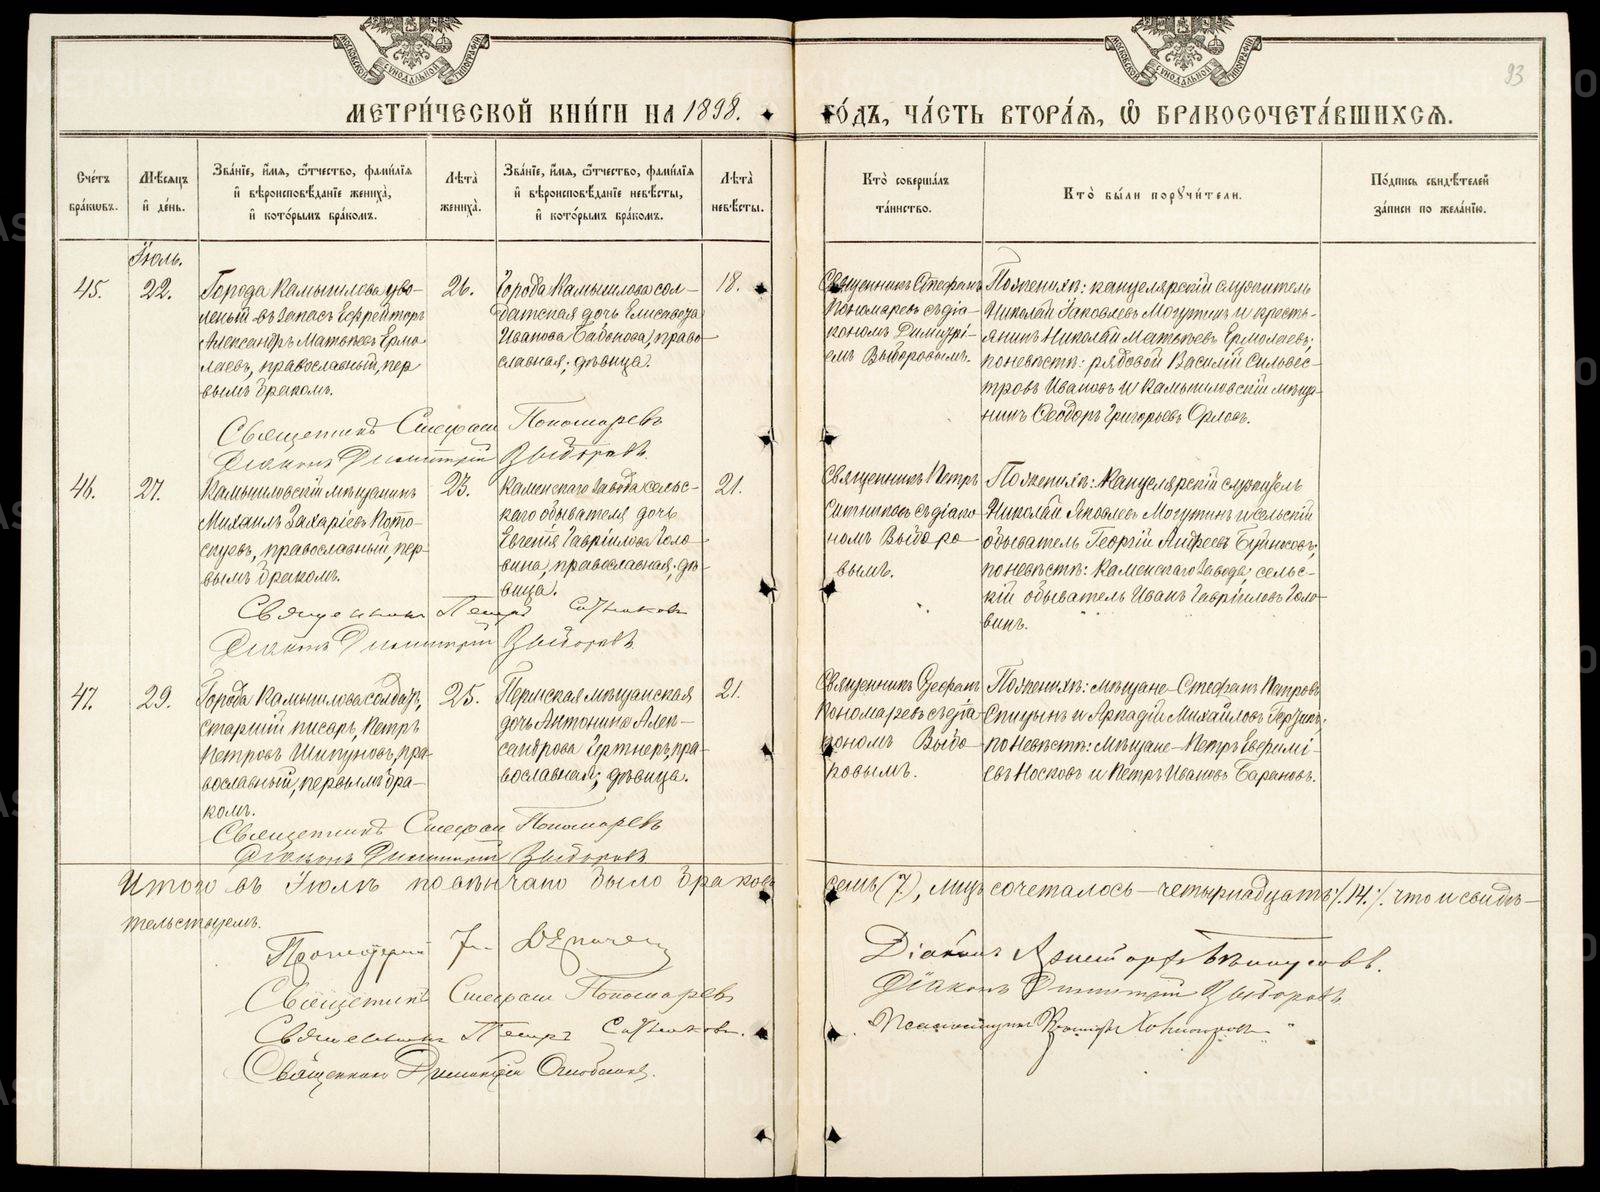 МОСКОВСКОЙ СѴНОДАЛЬНОЙ ТИПОГРАФІИ
МОСКОВСКОЙ СѴНОДАЛЬНОЙ ТИПОГРАФІИ
93
МЕТРИ́ЧЕСКОЙ КНИ́ГИ НА 1898.
ГО́ДЪ, ЧА́СТЬ ВТОРА́Ѧ, Ѽ БРАКОСОЧЕТА́ВШИХСѦ.
Сче́тъ бра́кѡвъ.
Мѣ́сѧцъ и҆ де́нь.
Зва́нїе, и҆́мѧ, ѻ҆́тчество, фами́лїѧ и҆ вѣроисповѣ́данїе жениха̀, и҆ кото́рымъ бра́комъ.
Лѣ́та жениха̀.
Зва́нїе, и҆́мѧ, ѻ҆́тчество, фами́лїѧ и҆ вѣроисповѣ́данїе невѣ́сты, и҆ кото́рымъ бра́комъ.
Лѣ́та невѣ́сты.
Кто̀ соверша́лъ та́инство.
Кто̀ бы́ли порꙋчи́тели.
По́дпись свидѣ́телей за́писи по жела́нїю.
Іюль.
45.
22.
Города Камышлова уво-
леный въ запасъ Ефрейторъ
Александръ Матвѣевъ Ермо-
лаевъ, православный, пер
вымъ бракомъ.
26.
Города Камышлова сол-
датская дочь Елисавета
Иванова Бабонова, право-
славная; дѣвица.
18.
Священникъ Стефанъ
Пономаревъ съ діа-
кономъ Димитрі-
емъ Выборовымъ.
По женихѣ: канцелярскій служитель
Николай Яковлевъ Могутинъ и кресть-
янинъ Николай Матвѣевъ Ермолаевъ;
по невѣстѣ: рядовой Василій Сильвес-
тровъ Ивановъ и Камышловскій мѣща-
нинъ Ѳеодоръ Григорьевъ Орловъ.
Священникъ Стефанъ Пономаревъ
Діаконъ Димитрій Выборовъ.
46.
27.
Камышловскій мѣщанинъ
Михаилъ Захаріевъ Пото-
скуевъ, православный, пер-
вымъ бракомъ.
23.
Каменскаго завода сельс-
каго обывателя дочь
Евгенія Гавріилова Голо-
вина, православная; дѣ-
вица.
21.
Священникъ Петръ
Ситниковъ съ діако-
номъ Выборо-
вымъ.
По женихѣ: Канцелярскій служитель
Николай Яковлевъ Могутинъ и сельскій
обыватель Георгій Андреевъ Буйносовъ;
по невѣстѣ: Каменскаго завода, сельс-
кій обыватель Иванъ Гавріиловъ Голо-
винъ.
Священникъ Петръ Ситниковъ
Діаконъ Димитрій Выборовъ
47.
29.
Города Камышлова солдатъ,
старшій писарь, Петръ
Петровъ Шипуновъ, пра-
вославный, первымъ бра-
комъ.
25.
Пермская мѣщанская
дочь Антонина Алек-
сандрова Гертнеръ, пра-
вославная; дѣвица.
21.
Священникъ Стефанъ
Пономаревъ съ діа-
кономъ Выбо-
ровымъ.
По женихѣ: мѣщане-Стефанъ Петровъ
Спицынъ и Аркадій Михайловъ
по невѣстѣ: мѣщане-Петръ Евѳимі-
евъ Носковъ и Петръ Ивановъ Барановъ.
Священникъ Стефанъ Пономаревъ
Діаконъ Димитрій Выборовъ
Итого въ Іюлѣ повѣнчано было браковъ семь (7), лицъ сочеталось-четырнадцать /.14./. что и свидѣ-
тельствуемъ.
Протоіерей
Священникъ Стефанъ Пономаревъ
Священникъ Петръ Ситниковъ.
Священникъ Димитрій
Діаконъ
Діаконъ Димитрій Выборовъ
Псаломщикъ
METRIKI.GASO-URAL.RU